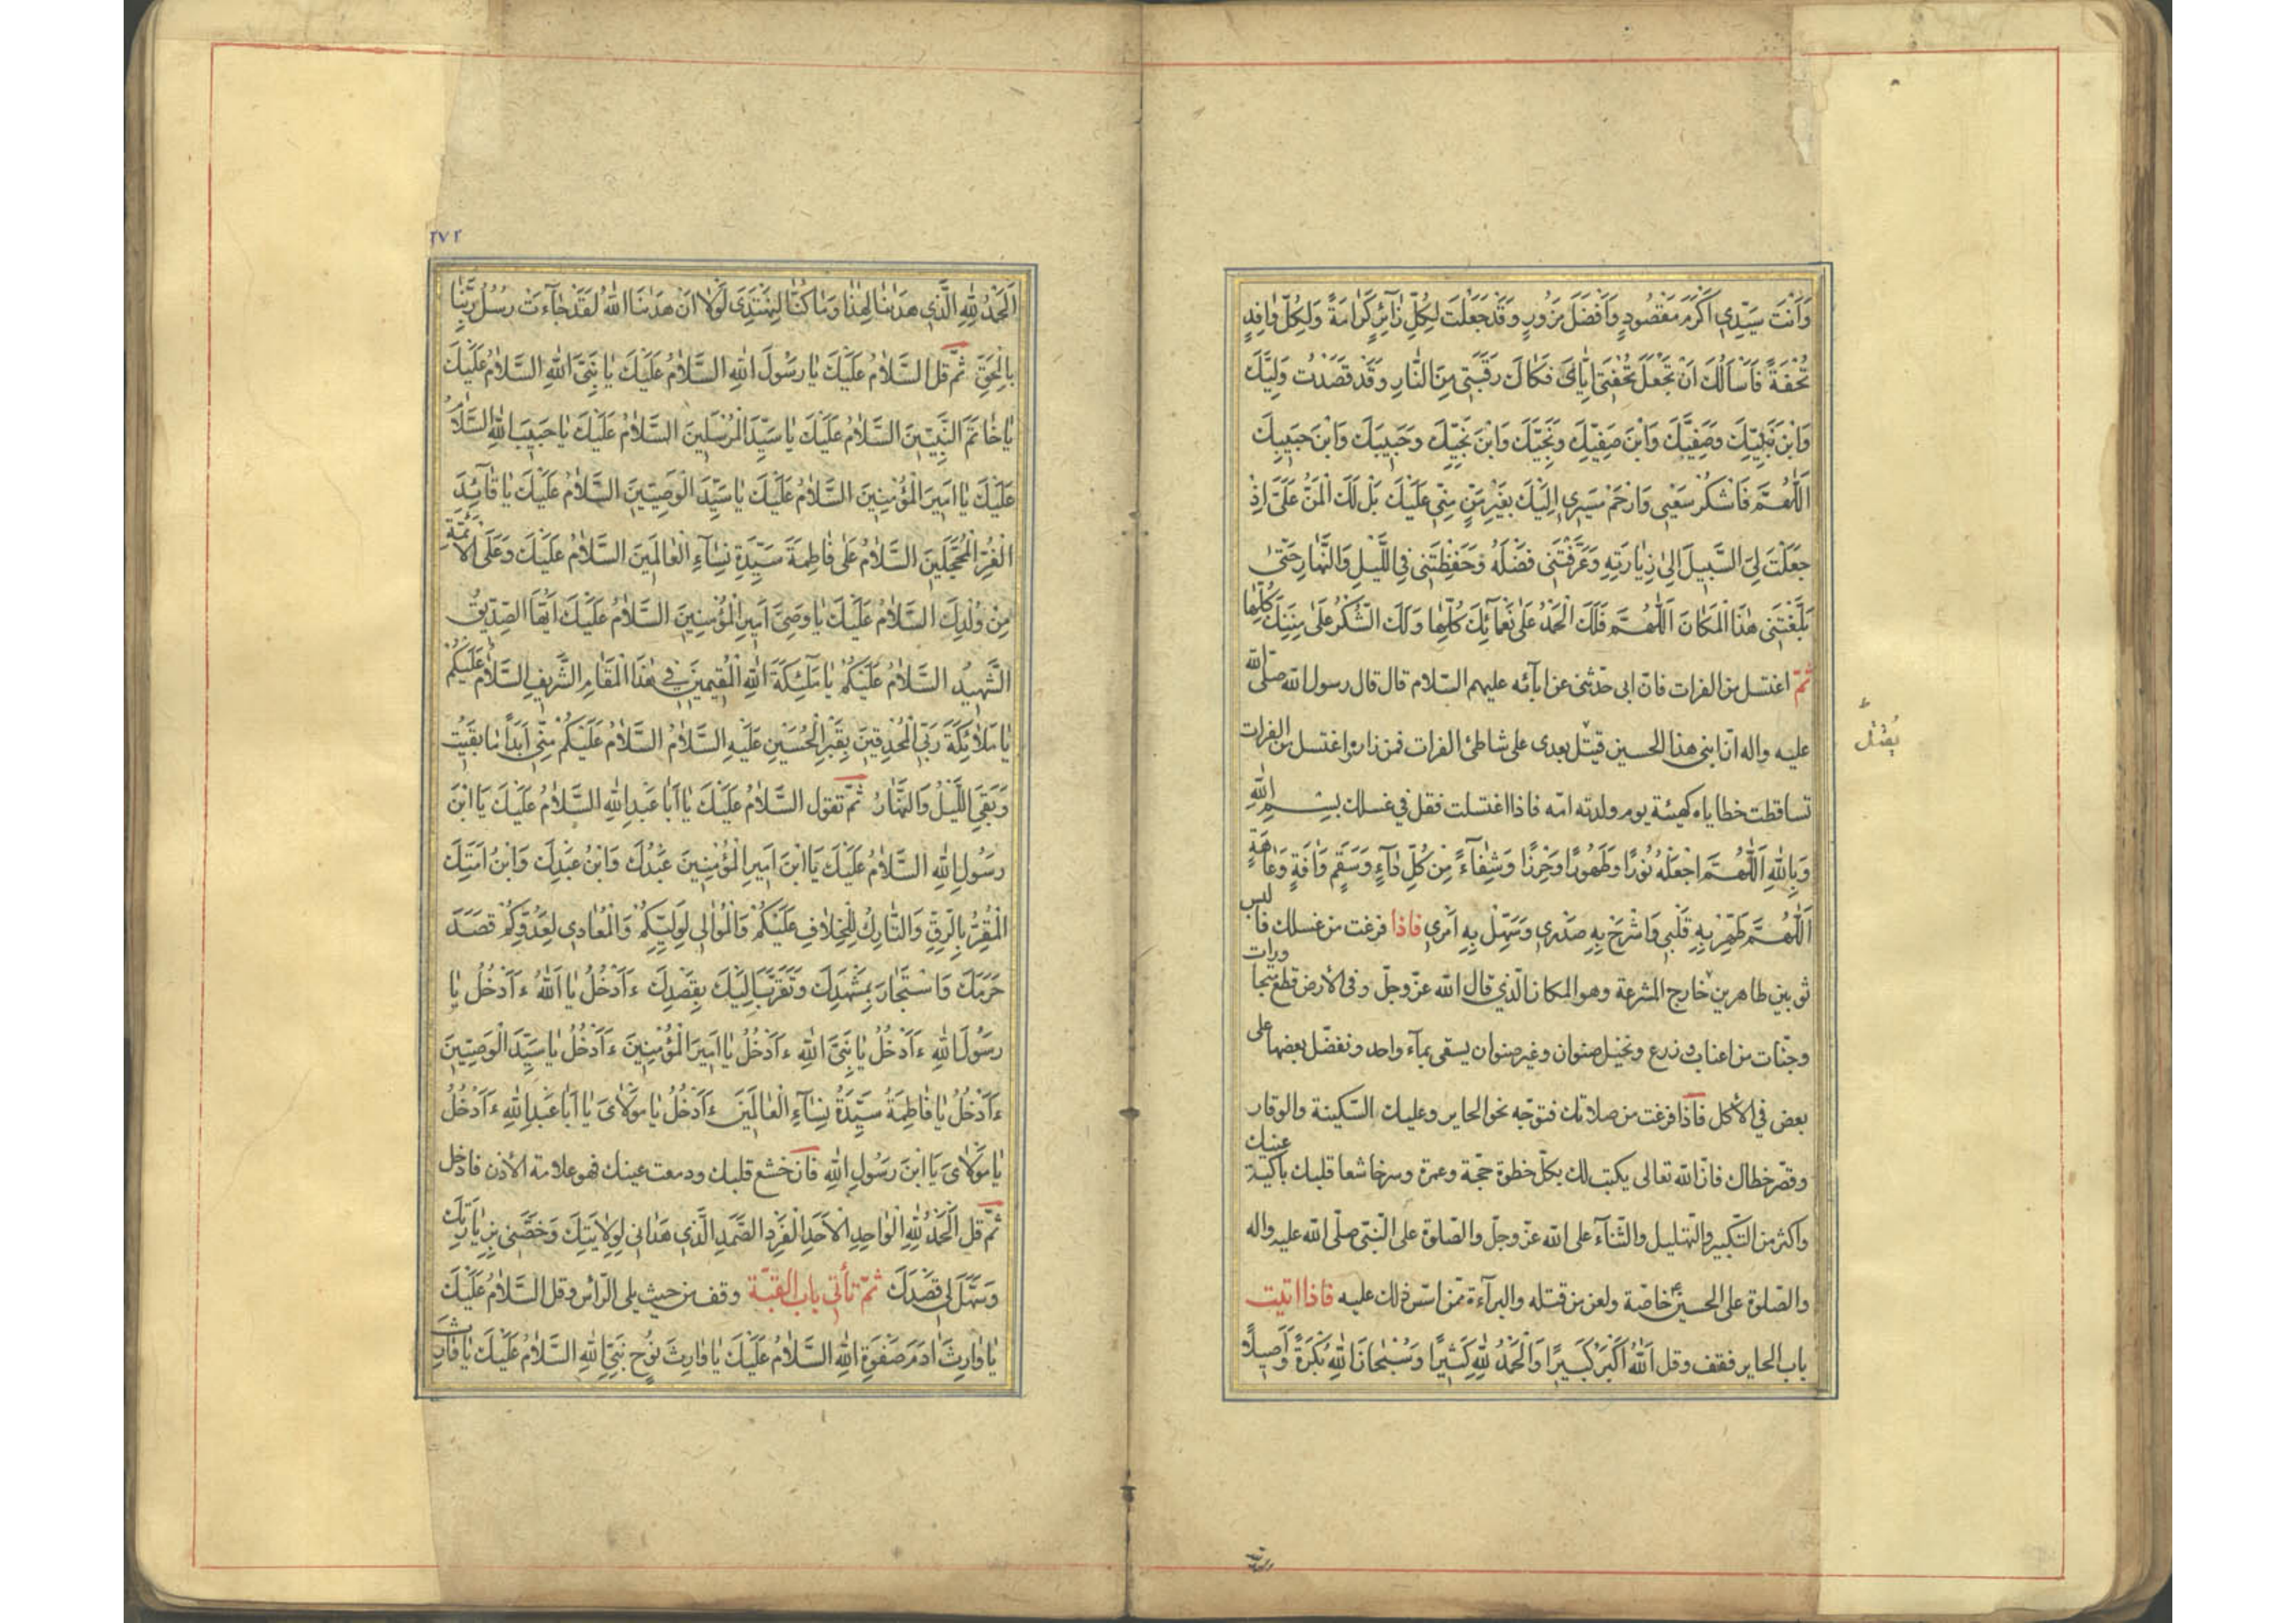 وَاَنْتَ سَيِّدِي اَكْرَمُ مَقْصُودٍ وَاَفْضَلُ مَزُورٍ وَقَدْ جَعَلْتَ لِكُلِّ زٰآئِرٍ كَرٰامَةً وَلِكُلِّ وٰافِدٍ
تُحْفَةً فَاَسْاَلُكَ اَنْ تَجْعَلَ تُحْفَتَكَ اِيّٰايَ فَكٰاكَ رَقَبَتِي مِنَ النّٰارِ وَقَدْ قَصَدْتُ وَلِيَّكَ
وَابْنَ نَبِيِّكَ وَصَفِيَّكَ وَابْنَ صَفِيِّكَ وَنَجِيَّكَ وَابْنَ نَجِيِّكَ وَحَبِيبَكَ وَابْنَ حَبِيبِكَ
اَللّٰهُمَّ فَاشْكُرْ سَعْيِي وَارْحَمْ مَسِيرِي اِلَيْكَ بِغَيْرِ مَنٍّ مِنِّي عَلَيْكَ بَلْ لَكَ الْمَنُّ عَلَيَّ اِذْ
جَعَلْتَ لِيَ السَّبِيلَ اِلىٰ زِيٰارَتِهِ وَعَرَّفْتَنِي فَضْلَهُ وَحَفِظْتَنِي فِي اللَّيْلِ وَالنَّهٰارِ حَتّىٰ
بَلَّغْتَنِي هٰذَا الْمَكٰانَ اَللّٰهُمَّ فَلَكَ الْحَمْدُ عَلىٰ نَعْمٰآئِكَ كُلِّهٰا وَلَكَ الشُّكْرُ عَلىٰ مِنَنِكَ كُلِّهٰا
ثمّ اغتسل من الفرات فانّ ابى حدّثنى عن ابآئه عليهم السّلام قال قال رسول الله صلّى الله
عليه واله انّ ابنى هذا الحسين قيتل بعدى على شاطئ الفرات فمن زاره واغتسل من الفرات
يُقتل
تساقطت خطاياه كهيئة يوم ولدته امّه فاذا اغتسلت فقل في غسلك بِسْمِ اللهِ
وَبِاللهِ اَللّٰهُمَّ اجْعَلْهُ نُورًا وَطَهُورًا وَحِرْزًا وَشِفٰآءً مِنْ كُلِّ دٰآءٍ وَسَقَمٍ وَاٰفَةٍ وَعٰاهَةٍ
اَللّٰهُمَّ طَهِّرْ بِهِ قَلْبِي وَاشْرَحْ بِهِ صَدْرِي وَسَهِّلْ بِهِ اَمْرِي فاذا فرغت من غسلك فالبس
ثوبين طاهرين خارج المشرعة وهو المكان الّذي قال الله عزّ وجلّ وفي الأرض قطع متجاورات
وجنّات من اعناب وزرع ونخيل صنوان وغير صنوان يسقى بمآء واحد ونفضّل بعضها على
بعض في الأكل فاذا فرغت من صلاتك فتوجّه نحو الحاير وعليك السّكينة والوقار
وقصّر خطاك فانّ الله تعالى يكتب لك بكلّ خطوة حجّة وعمرة وسر خاشعا قلبك باكية عينك
واكثر من التّكبير والتّهليل والثّنآء على الله عزّ وجلّ والصّلوة على النّبيّ صلّى الله عليه واله
والصّلوة على الحسين خاصّة ولعن من قتله والبرآءة ممّن اسّس ذلك عليه فاذا اتيت
باب الحاير فقف وقل اَللهُ اَكْبَرُ كَبِيرًا وَالْحَمْدُ لِلّٰهِ كَثِيرًا وَسُبْحٰانَ اللهِ بُكْرَةً وَاَصِيلًا
٢٧٢
اَلْحَمْدُ لِلّٰهِ الَّذِي هَدٰينٰا لِهٰذٰا وَمٰا كُنّٰا لِنَهْتَدِيَ لَوْلٰا اَنْ هَدٰينَا اللهُ لَقَدْ جٰآءَتْ رُسُلُ رَبِّنٰا
بِالْحَقِّ ثُمَّ قل السَّلٰامُ عَلَيْكَ يٰا رَسُولَ اللهِ السَّلٰامُ عَلَيْكَ يٰا نَبِيَّ اللهِ السَّلٰامُ عَلَيْكَ
يٰا خٰاتَمَ النَّبِيِّينَ السَّلٰامُ عَلَيْكَ يٰا سَيِّدَ الْمُرْسَلِينَ السَّلٰامُ عَلَيْكَ يٰا حَبِيبَ اللهِ السَّلٰامُ
عَلَيْكَ يٰا اَمِيرَ الْمُؤْمِنِينَ السَّلٰامُ عَلَيْكَ يٰا سَيِّدَ الْوَصِيِّينَ السَّلٰامُ عَلَيْكَ يٰا قٰآئِدَ
الْغُرِّ الْمُحَجَّلِينَ السَّلٰامُ عَلىٰ فٰاطِمَةَ سَيِّدَةِ نِسٰآءِ الْعٰالَمِينَ السَّلٰامُ عَلَيْكَ وَعَلَى الْاَئِمَّةِ
مِنْ وُلْدِكَ السَّلٰامُ عَلَيْكَ يٰا وَصِيَّ اَمِيرِ الْمُؤْمِنِينَ السَّلٰامُ عَلَيْكَ اَيُّهَا الصِّدِّيقُ
الشَّهِيدُ السَّلٰامُ عَلَيْكُمْ يٰا مَلٰٓئِكَةَ اللهِ الْمُقِيمِينَ فِي هٰذَا الْمَقٰامِ الشَّرِيفِ السَّلٰامُ عَلَيْكُمْ
يٰا مَلٰآئِكَةَ رَبِّي الْمُحْدِقِينَ بِقَبْرِ الْحُسَيْنِ عَلَيْهِ السَّلٰامُ السَّلٰامُ عَلَيْكُمْ مِنِّي اَبَدًا مٰا بَقِيتُ
وَبَقِيَ اللَّيْلُ وَالنَّهٰارُ ثُمَّ تقول السَّلٰامُ عَلَيْكَ يٰا اَبٰا عَبْدِ اللهِ السَّلٰامُ عَلَيْكَ يَا ابْنَ
رَسُولِ اللهِ السَّلٰامُ عَلَيْكَ يَا ابْنَ اَمِيرِ الْمُؤْمِنِينَ عَبْدُكَ وَابْنُ عَبْدِكَ وَابْنُ اَمَتِكَ
الْمُقِرُّ بِالرِّقِّ وَالتّٰارِكُ لِلْخِلٰافِ عَلَيْكُمْ وَالْمُوٰالِي لِوَلِيِّكُمْ وَالْمُعٰادِي لِعَدُوِّكُمْ قَصَدَ
حَرَمَكَ وَاسْتَجٰارَ بِمَشْهَدِكَ وَتَقَرَّبَ اِلَيْكَ بِقَصْدِكَ ءَاَدْخُلُ يٰا اَللهُ ءَاَدْخُلُ يٰا
رَسُولَ اللهِ ءَاَدْخُلُ يٰا نَبِيَّ اللهِ ءَاَدْخُلُ يٰا اَمِيرَ الْمُؤْمِنِينَ ءَاَدْخُلُ يٰا سَيِّدَ الْوَصِيِّينَ
ءَاَدْخُلُ يٰا فٰاطِمَةُ سَيِّدَةُ نِسٰآءِ الْعٰالَمِينَ ءَاَدْخُلُ يٰا مَوْلٰايَ يٰا اَبٰا عَبْدِ اللهِ ءَاَدْخُلُ
يٰا مَوْلٰايَ يَا ابْنَ رَسُولِ اللهِ فان خشع قلبك ودمعت عينك فهو علامة الأذن فادخل
ثمّ قل اَلْحَمْدُ لِلّٰهِ الْوٰاحِدِ الْاَحَدِ الْفَرْدِ الصَّمَدِ الَّذِي هَدٰانِي لِوِلٰايَتِكَ وَخَصَّنِي بِزِيٰارَتِكَ
وَسَهَّلَ لِي قَصْدَكَ ثمّ تأتي باب القبّة وقف من حيث يلي الرّأس وقل السَّلٰامُ عَلَيْكَ
يٰا وٰارِثَ اٰدَمَ صَفْوَةِ اللهِ السَّلٰامُ عَلَيْكَ يٰا وٰارِثَ نُوحٍ نَبِيِّ اللهِ السَّلٰامُ عَلَيْكَ يٰا وٰارِثَ